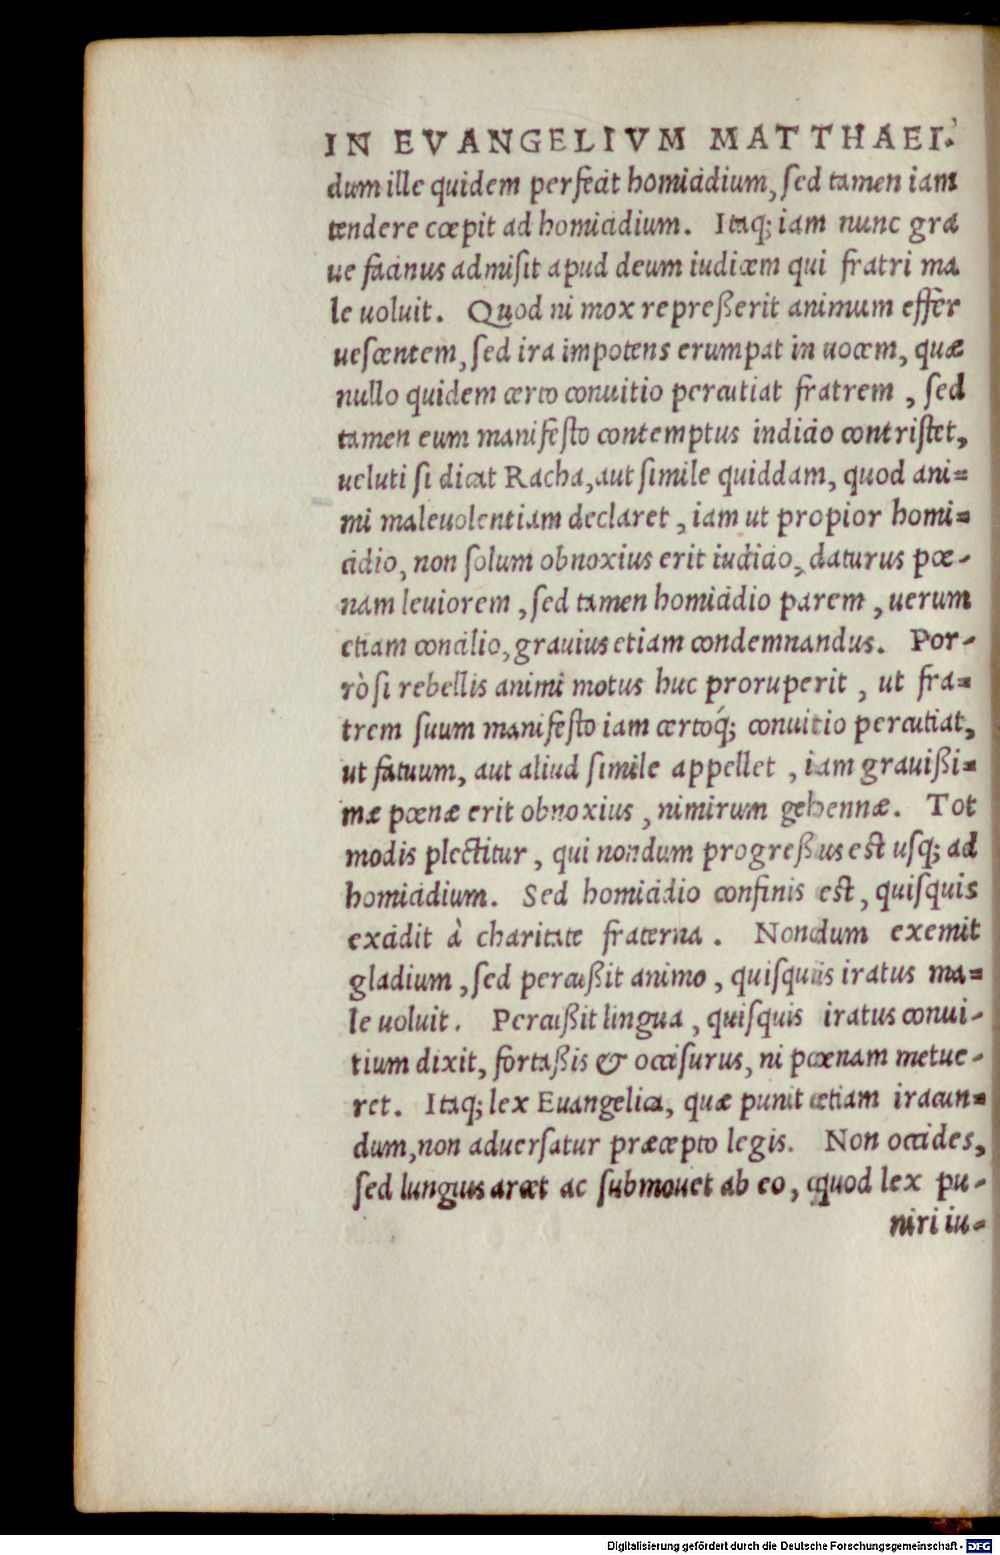 IN EVANGELIVM MATTHAEI.
dum ille quidem perfecit homicidium, ſed tamen iam
tendere cœpit ad homicidium. Itaq; iam nunc gra
ue facinus admiſit apud deum iudicem qui fratri ma
le uoluit. Quod ni mox repreßerit animum effer
ueſcentem, ſed ira impotens erumpat in uocem, quæ
nullo quidem certo conuitio percutiat fratrem, ſed
tamen eum manifeſto contemptus indicio contriſtet,
ueluti ſi dicat Racha, aut ſimile quiddam, quod ani=
mi maleuolentiam declaret, iam ut propior homi=
cidio, non ſolum obnoxius erit iudicio, daturus pœ-
nam leuiorem, ſed tamen homicidio parem, uerum
etiam concilio, grauius etiam condemnandus. Por-
rò ſi rebellis animi motus huc proruperit, ut fra=
trem ſuum manifeſto iam certoq́; conuitio percutiat,
ut fatuum, aut aliud ſimile appellet, iam grauißi=
mæ pœnæ erit obnoxius, nimirum gehennæ. Tot
modis plectitur, qui nondum progreßus est uſq; ad
homicidium. Sed homicidio confinis est, quiſquis
excidit à charitate fraterna. Nondum exemit
gladium, ſed percußit animo, quiſquis iratus ma=
le uoluit. Percußit lingua, quiſquis iratus conui-
tium dixit, fortaßis & occiſurus, ni pœnam metue-
ret. Itaq; lex Euangelica, quæ punit etiam iracun=
dum, non aduerſatur præcepto legis. Non occides,
ſed lungius arcet ac ſubmouet ab eo, quod lex pu-
niri iu-
Digitalisierung gefördert durch die Deutsche Forschungsgemeinschaft - DFG